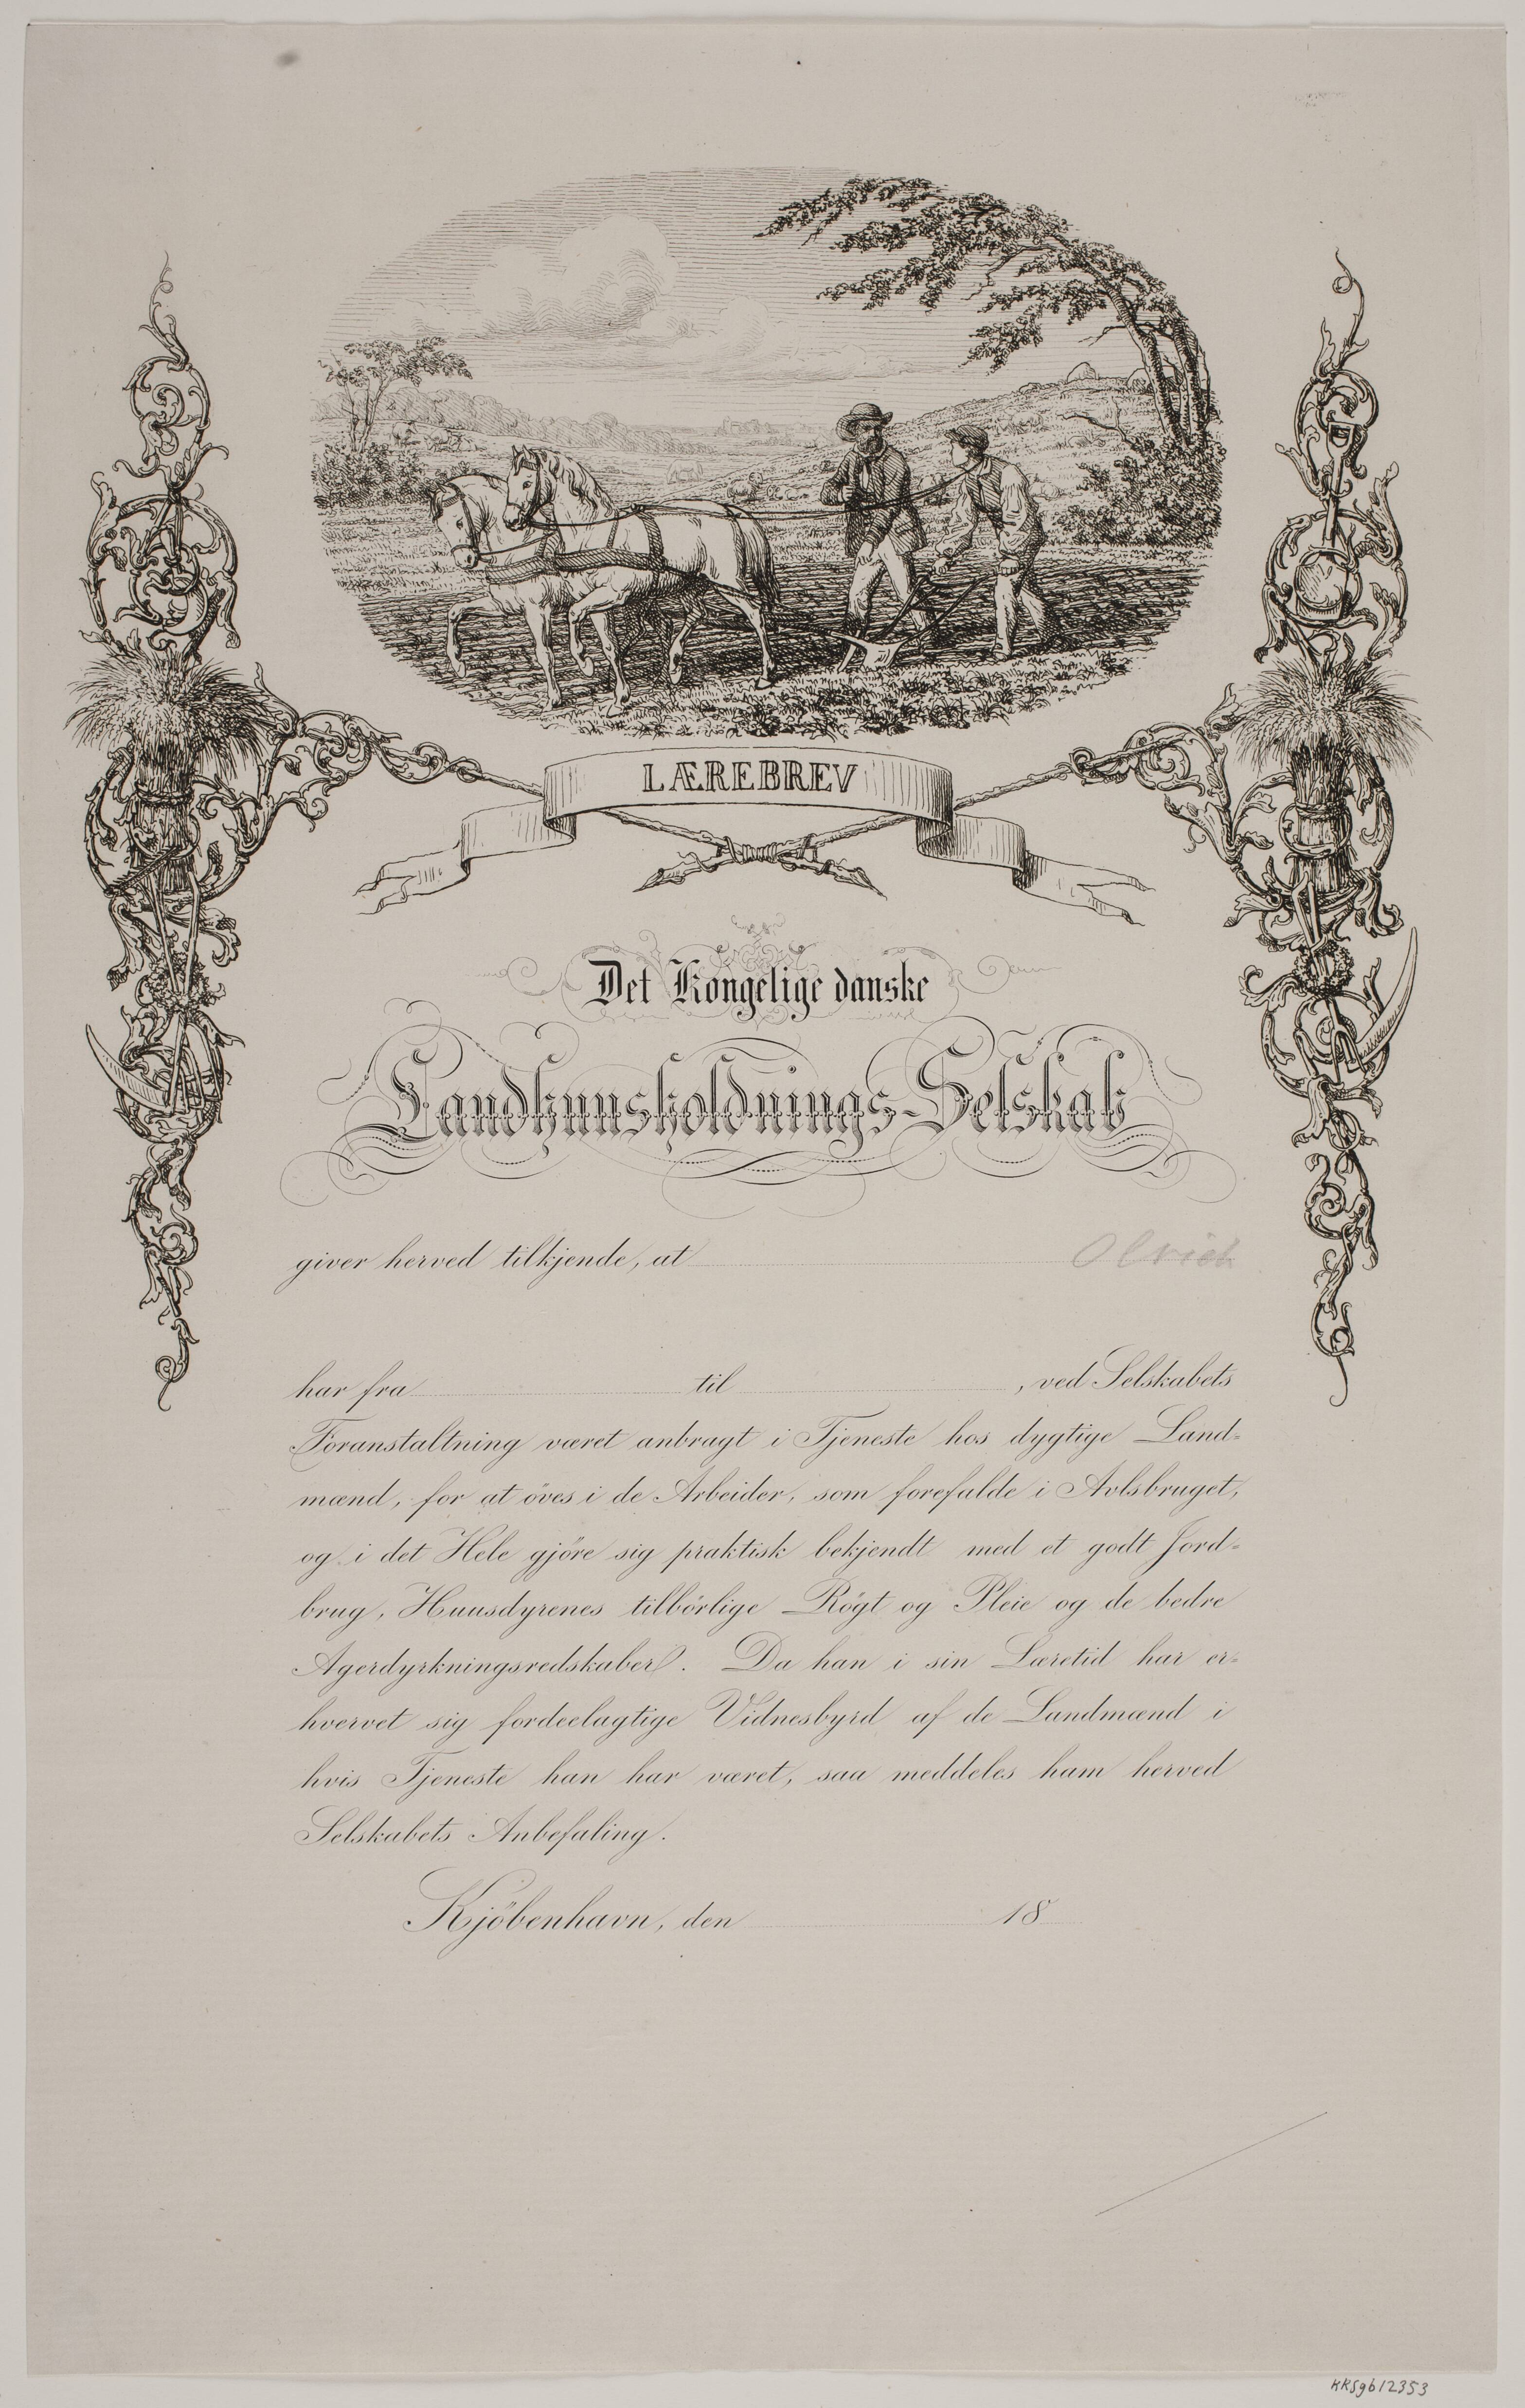 LÆREBREV
Det Kongelige danske
Landhuusholdnings-Selskab
giver herved tilkjende, at Olrich
har fra til , ved Selskabets
Foranstaltning været anbragt i Tjeneste hos dygtige Land=
mænd, for at öves i de Arbeider, som forefalde i Avlsbruget,
og i det Hele gjöre sig praktisk bekjendt med et godt Jord=
brug, Huusdyrenes tilbörlige Rögt og Pleie og de bedre
Agerdyrkningsredskaber. Da han i sin Læretid har er=
hvervet sig fordeelagtige Vidnesbyrd af de Landmænd i
hvis Tjeneste han har været, saa meddeles ham herved
Selskabets Anbefaling.
Kjöbenhavn, den 18
KKSgb12353